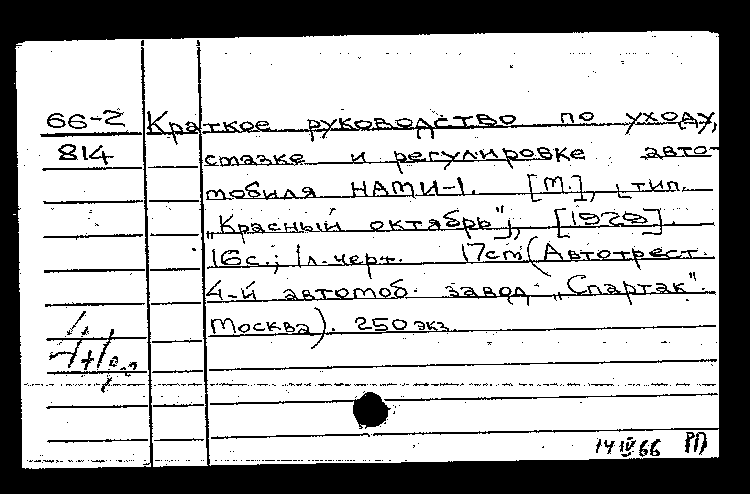 66-2 Краткое руководство по уходу,
814 смазке и регулировке авто-
мобиля НАМИ-1. [М.], [тип.
„Красный октябрь"], [1929].
16с.; 1л.черт. 17см (Автотрест.
4-й автомоб. завод „Спартак".
Москва). 250 экз.
14 IV 66 РП